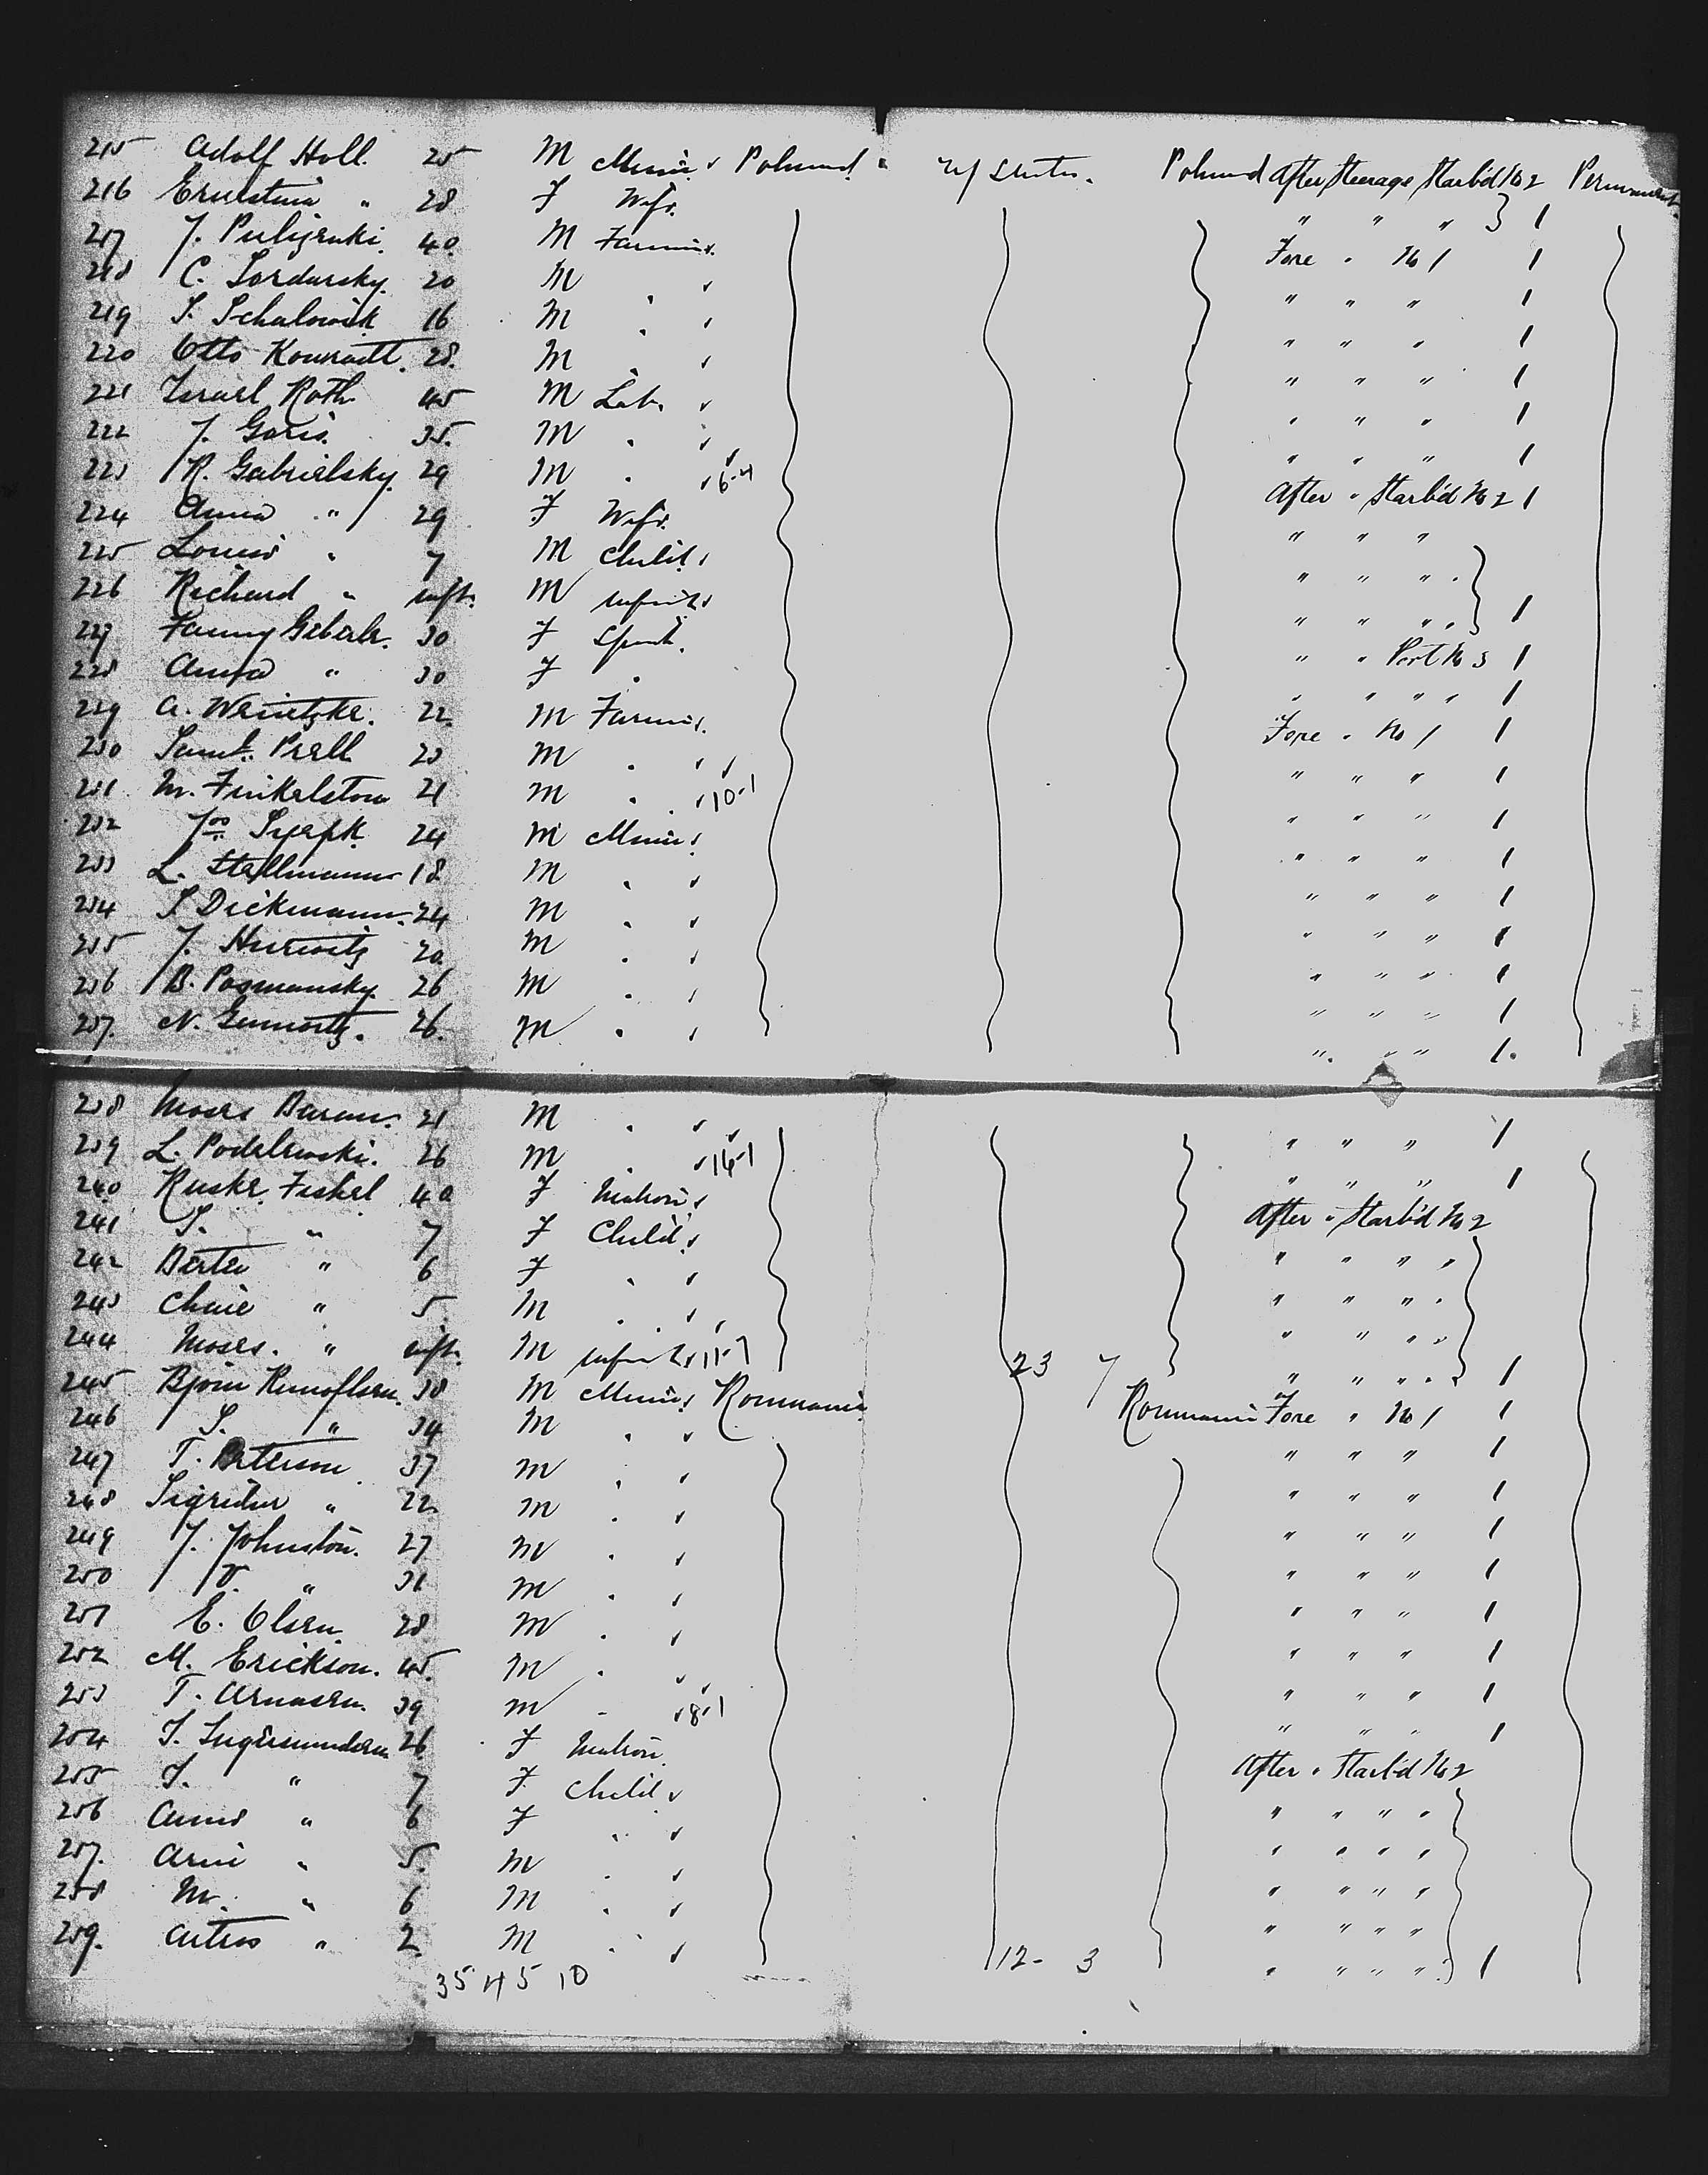 215 Adolf Holl. 25 M Miner Poland U/States. Poland After Steerage Starb'd No 2 Permanent
216 Ernestina " 28 F Wife. " " " 1
217 J. 40. M Farmer. Fore " No 1 1
218 C. Sordursky. 20 M " " " " 1
219 S. Schalowick 16 M " " " " 1
220 Otto Konradt. 28. M " " " " 1
221 Israel Roth 45 M Lab. " " " 1
222 J. Goris. 35. M " " " " 1
223 R. Gabrielsky. 29 M " 6-4 After " Starb'd No 2 1
224 Anna " 29 F Wife. " " "
225 Louis " 7 M Child " " "
226 Richard " inft. M infant " " " " 1
227 Fanny Geberle. 30 F Spinst. " " Port No 3 1
228 Anna " 30 F " " " " " 1
229 A. Wenietzke. 22. M Farmer. Fore " No 1 1
230 Saml. Prell 23 M " " " " 1
231 M. Finkelston 21 M " 10-1 " " " 1
232 24 M Miner " " " 1
233 L. Stellmann 18 M " " " " 1
234 S Dickmann. 24 M " " " " 1
235 J. Hurwitz 20. M " " " " 1
236 B. Posmansky. 26 M " " " " 1
237. N. 26. M " " " " 1.
238 Moses Baran. 21 M " " " " 1
239 L. Podelewski. 26 M " 14-1 " " " 1
240 Ruske Fiskel 40 F Matron After " Starb'd No 2
241 S. " 7 F Child " " " "
242 Berta " 6 F " " " " "
243 Chaie " 5 M " " " " "
244 Moses. " inft. M infant 11-7 23 7 " " " " 1
245 Bjorn 38 M Miner Roumania Roumania Fore " No 1 1
246 S. " 34 M " " " " 1
247 T. Peterson 37 M " " " " 1
248 Sigridur " 22. M " " " " 1
249 J. Johnston. 27 M " " " " 1
250 " 31 M " " " " 1
251 E. Olsen 28 M " " " " 1
252 M. Erickson. 45. M " " " " 1
253 T. Arnasen. 39 M " 8-1 " " " 1
254 26 F Matron After " Starb'd No 2
255 S. " 7 F Child " " " "
256 Anna " 6 F " " " " "
257. Arni " 5. M " " " " "
258 M. " 6 M " " " " "
259. " 2. M " 12- 3 " " " " 1
35 4 5 10